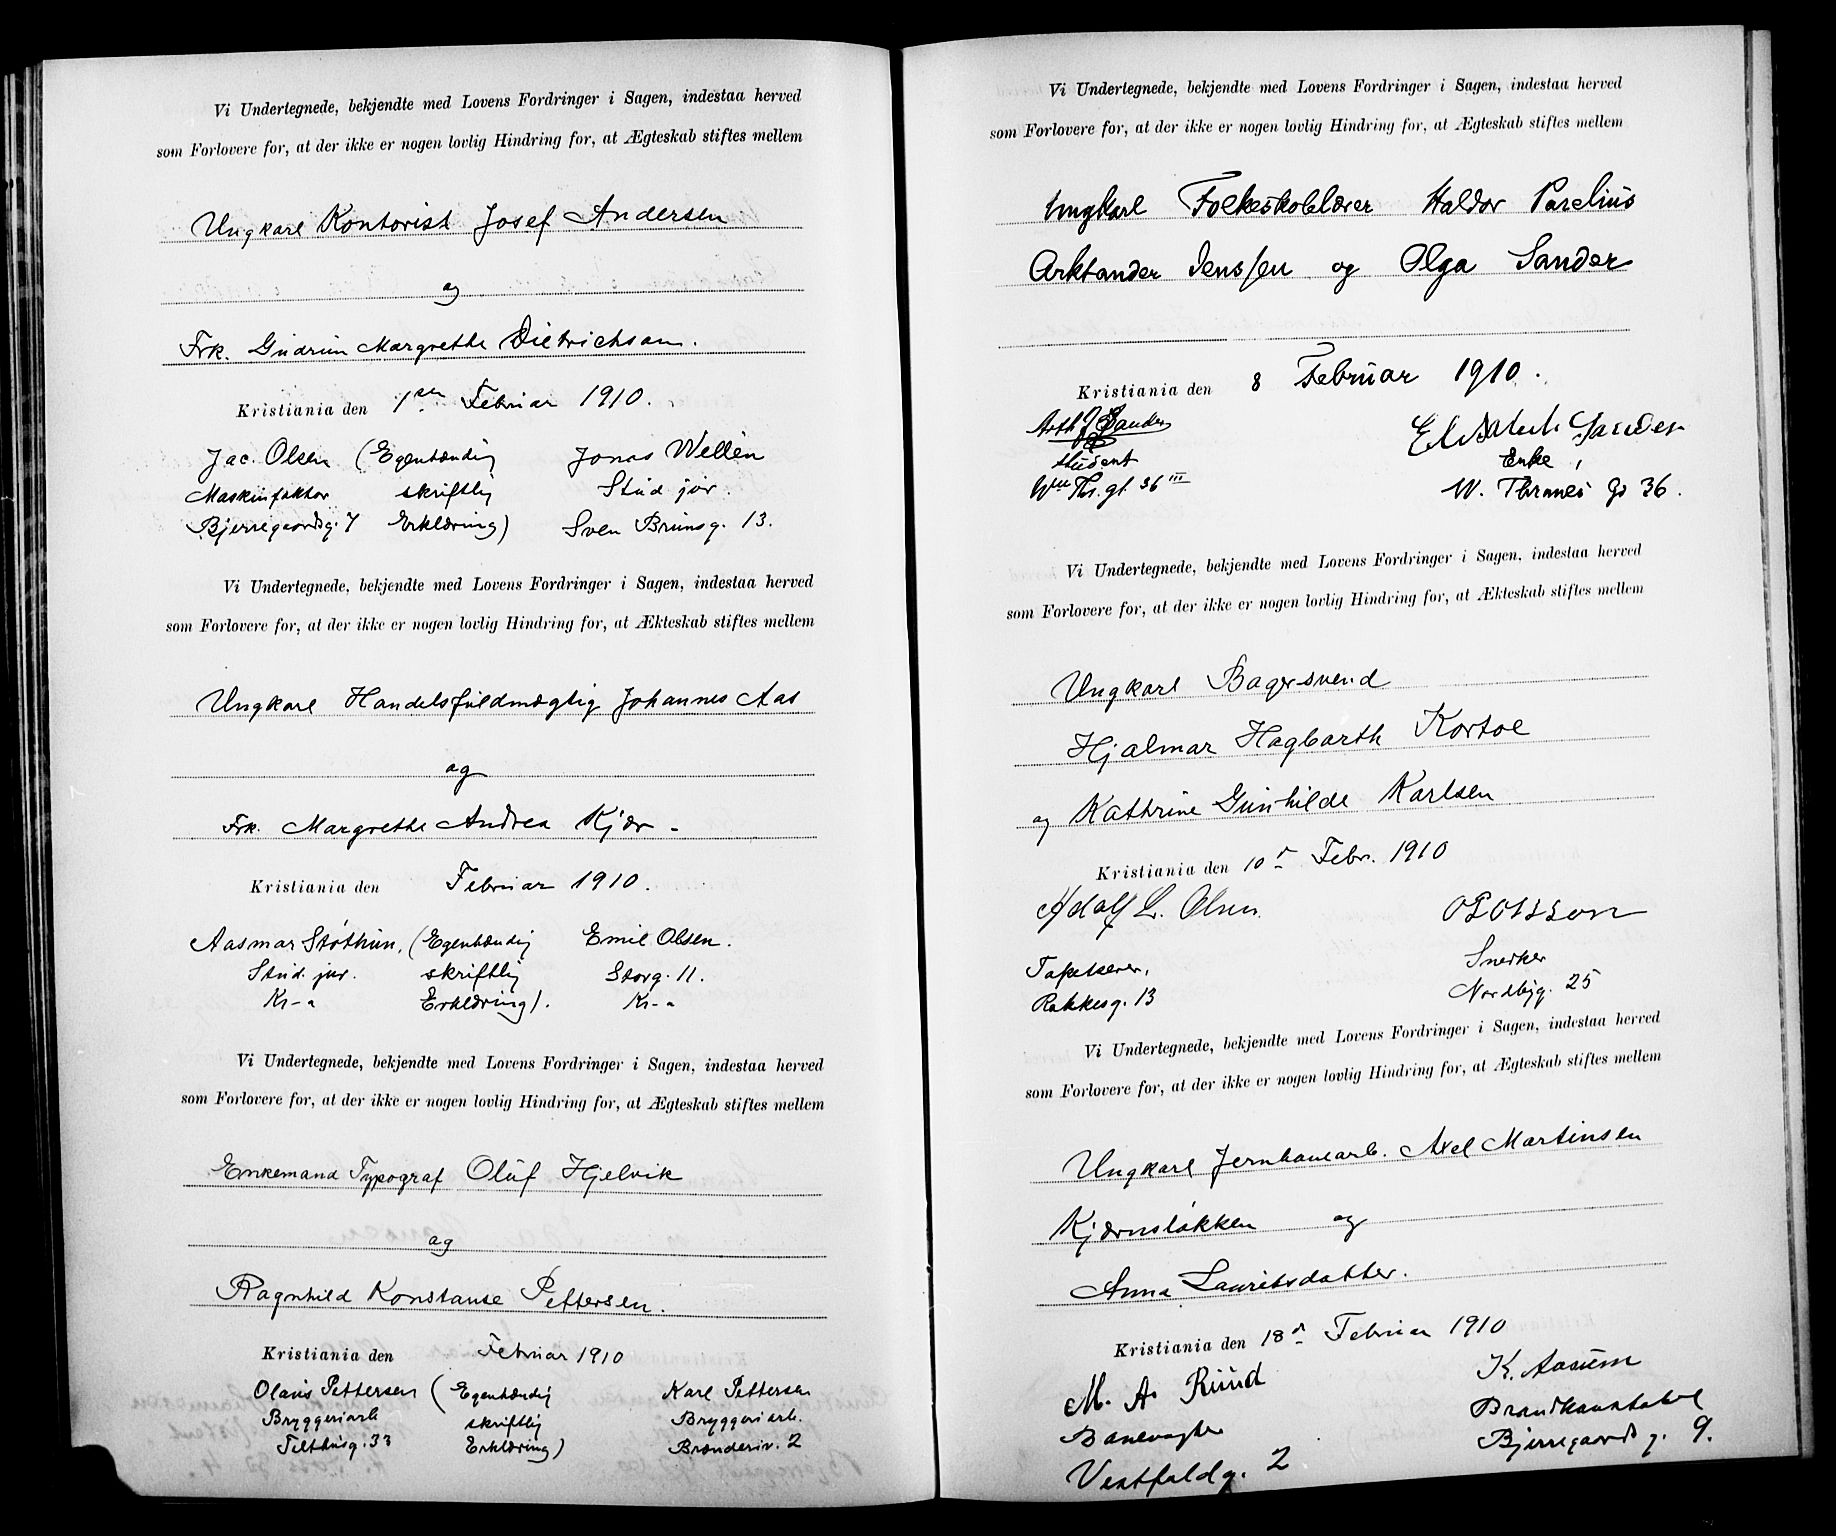 Vi Undertegnede, bekjendte med Lovens Fordringer i Sagen, indestaa herved
som Forlovere for, at der ikke er nogen lovlig Hindring for, at Ægteskab stiftes mellem
Ungkarl Kontorist Josef Andersen
og
Frk. Gudrun Margrethe Dietrichson.
Kristiania den 1ste Februar 1910.
Jac. Olsen (Egenhændig Jonas Wellén
Maskinfaktor skriftlig Stud. jur.
Bjerregaardsg. 7 Erklæring) Sven Brunsg. 13.
Vi Undertegnede, bekjendte med Lovens Fordringer i Sagen, indestaa herved
som Forlovere for, at der ikke er nogen lovlig Hindring for, at Ækteskab stiftes mellem
Ungkarl Handelsfuldmægtig Johannes Aas
og
Frk. Margrethe Andrea Kjær -
Kristiania den Februar 1910.
Aasmar Støthun, (Egenhændig Emil Olsen.
Stud. jur. skriftlig Storg. 11.
Kr-a Erklæring). Kr-a
Vi Undertegnede, bekjendte med Lovens Fordringer i Sagen, indestaa herved
som Forlovere for, at der ikke er nogen lovlig Hindring for, at Ægteskab stiftes mellem
Enkemand Typograf Oluf Hjelvik
og
Ragnhild Konstanse Pettersen.
Kristiania den Februar 1910
Olaus Pettersen (Egenhændig Karl Pettersen
Bryggeriarb skriftlig Bryggeriarb.
Telthusg. 33 Erklæring) Brænderiv. 2
Vi Undertegnede, bekjendte med Lovens Fordringer i Sagen, indestaa herved
som Forlovere for, at der ikke er nogen lovlig Hindring for, at Ægteskab stiftes mellem
Ungkarl Folkeskolelærer Haldor Parelius
Arktander Jenssen og Olga Sander
Kristiania den 8 Februar 1910.
Arth J Sander Elisabeth Sander
student Enke,
Wm Thr. gt. 36 III W. Thranes g 36.
Vi Undertegnede, bekjendte med Lovens Fordringer i Sagen, indestaa herved
som Forlovere for, at der ikke er nogen lovlig Hindring for, at Ækteskab stiftes mellem
Ungkarl Bagersvend
Hjalmar Hagbarth Kortoe
og Kathrine Gunhilde Karlsen
Kristiania den 10d Febr. 1910
Adolf L. Olsen Olsson
Tapetserer, Snerker
Rakkesg. 13 Nordbyg. 25
Vi Undertegnede, bekjendte med Lovens Fordringer i Sagen, indestaa herved
som Forlovere for, at der ikke er nogen lovlig Hindring for, at Ægteskab stiftes mellem
Ungkarl Jernbanearb. Axel Martinsen
Kjærnsløkken og
Anna Lauritsdatter.
Kristiania den 18d Februar 1910
M. A. Ruud K. Aasum
Banevogter Brandkonstabel
Vestfoldg. 2 Bjerregaards g. 9.